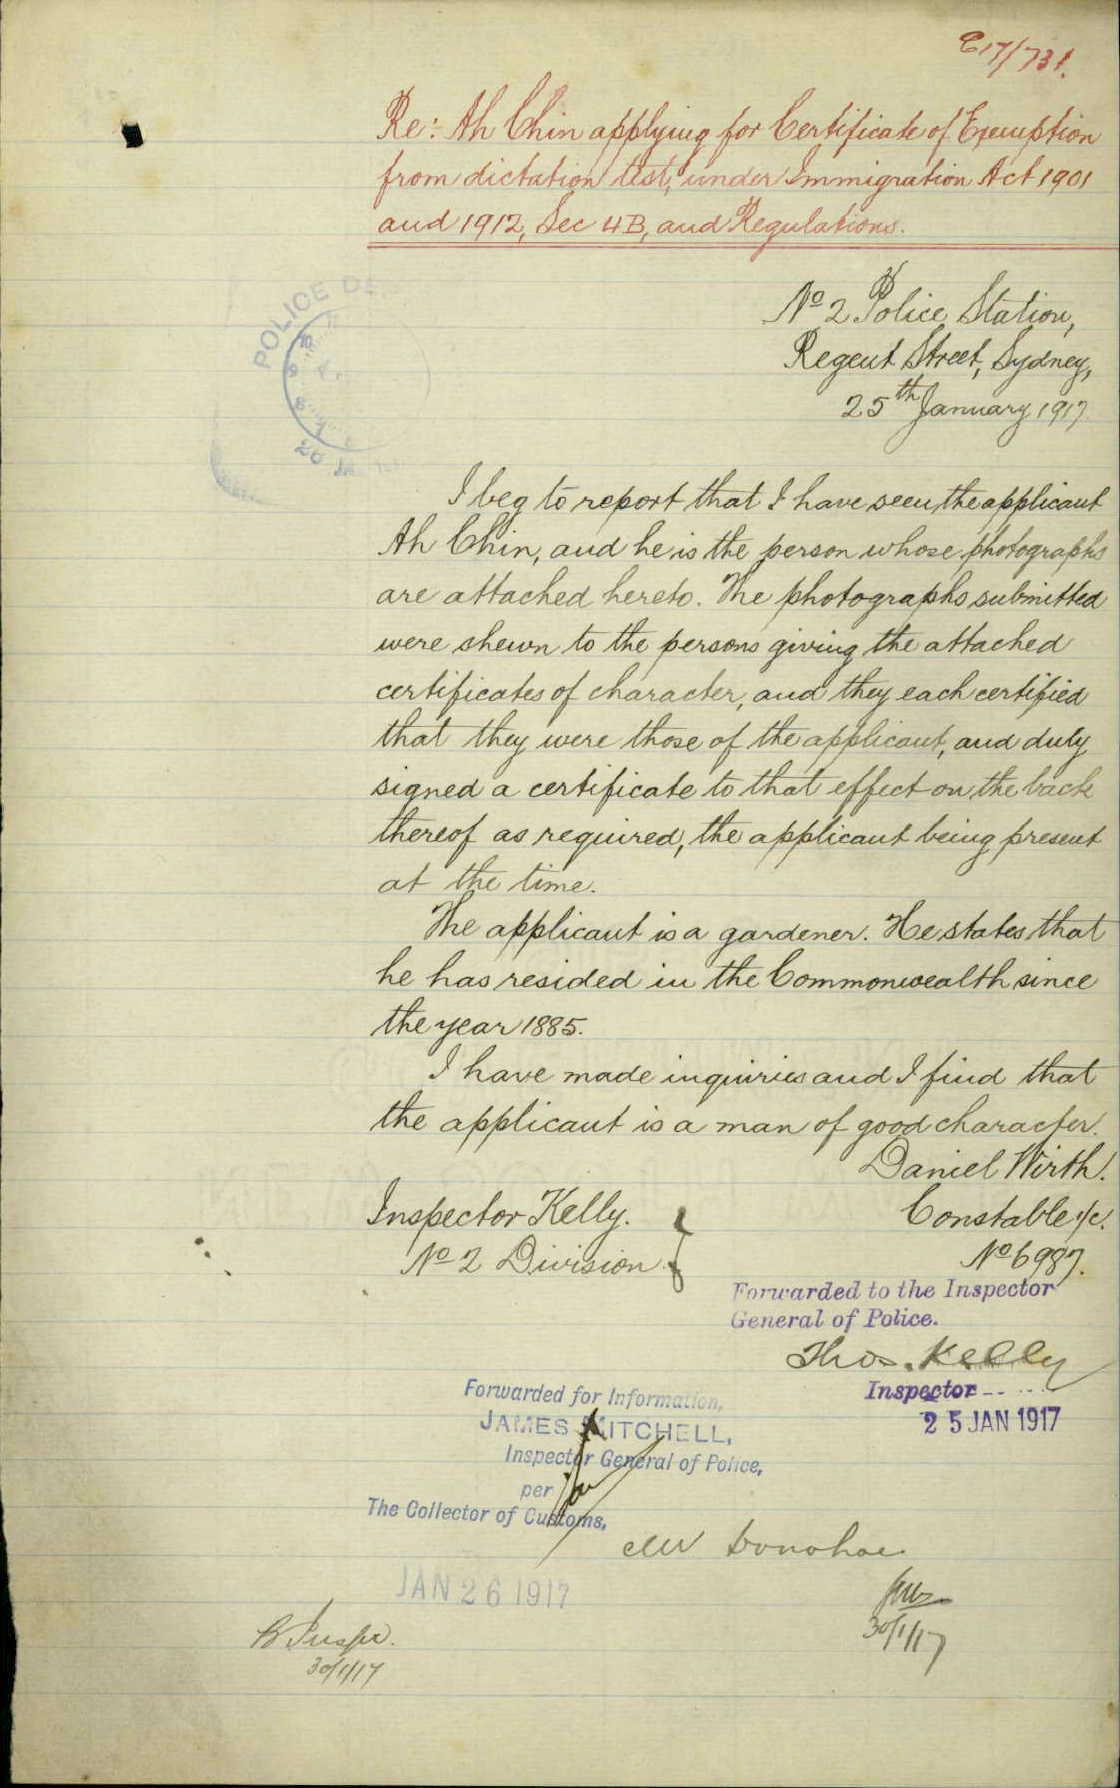 C17/731.
Re: Ah Chin applying for Certificate of Exemption
from dictation test, under Immigration Act 1901
and 1912, Sec 4B, and Regulations.
No 2 Police Station,
Regent Street, Sydney,
25th January 1917
POLICE DE
I beg to report that I have seen the applicant
Ah Chin, and he is the person whose photographs
are attached hereto. The photographs submitted
were shewn to the persons giving the attached
certificates of character, and they each certified
that they were those of the applicant, and duly
signed a certificate to that effect on the back
thereof as required, the applicant being present
at the time.
The applicant is a gardener. He states that
he has resided in the Commonwealth since
the year 1885.
I have made inquiries and I find that
the applicant is a man of good character.
Daniel Wirth.
Constable 1/c.
No 6987.
Inspector Kelly.
No 2 Division
Forwarded to the Inspector
General of Police.
Thos. Kelly
Inspector
25 JAN 1917
Forwarded for Information,
JAMES MITCHELL,
Inspector General of Police,
per
The Collector of Customs,
Mr Donohoe
JAN 26 1917
30/1/17
B Inspr.
30/1/17